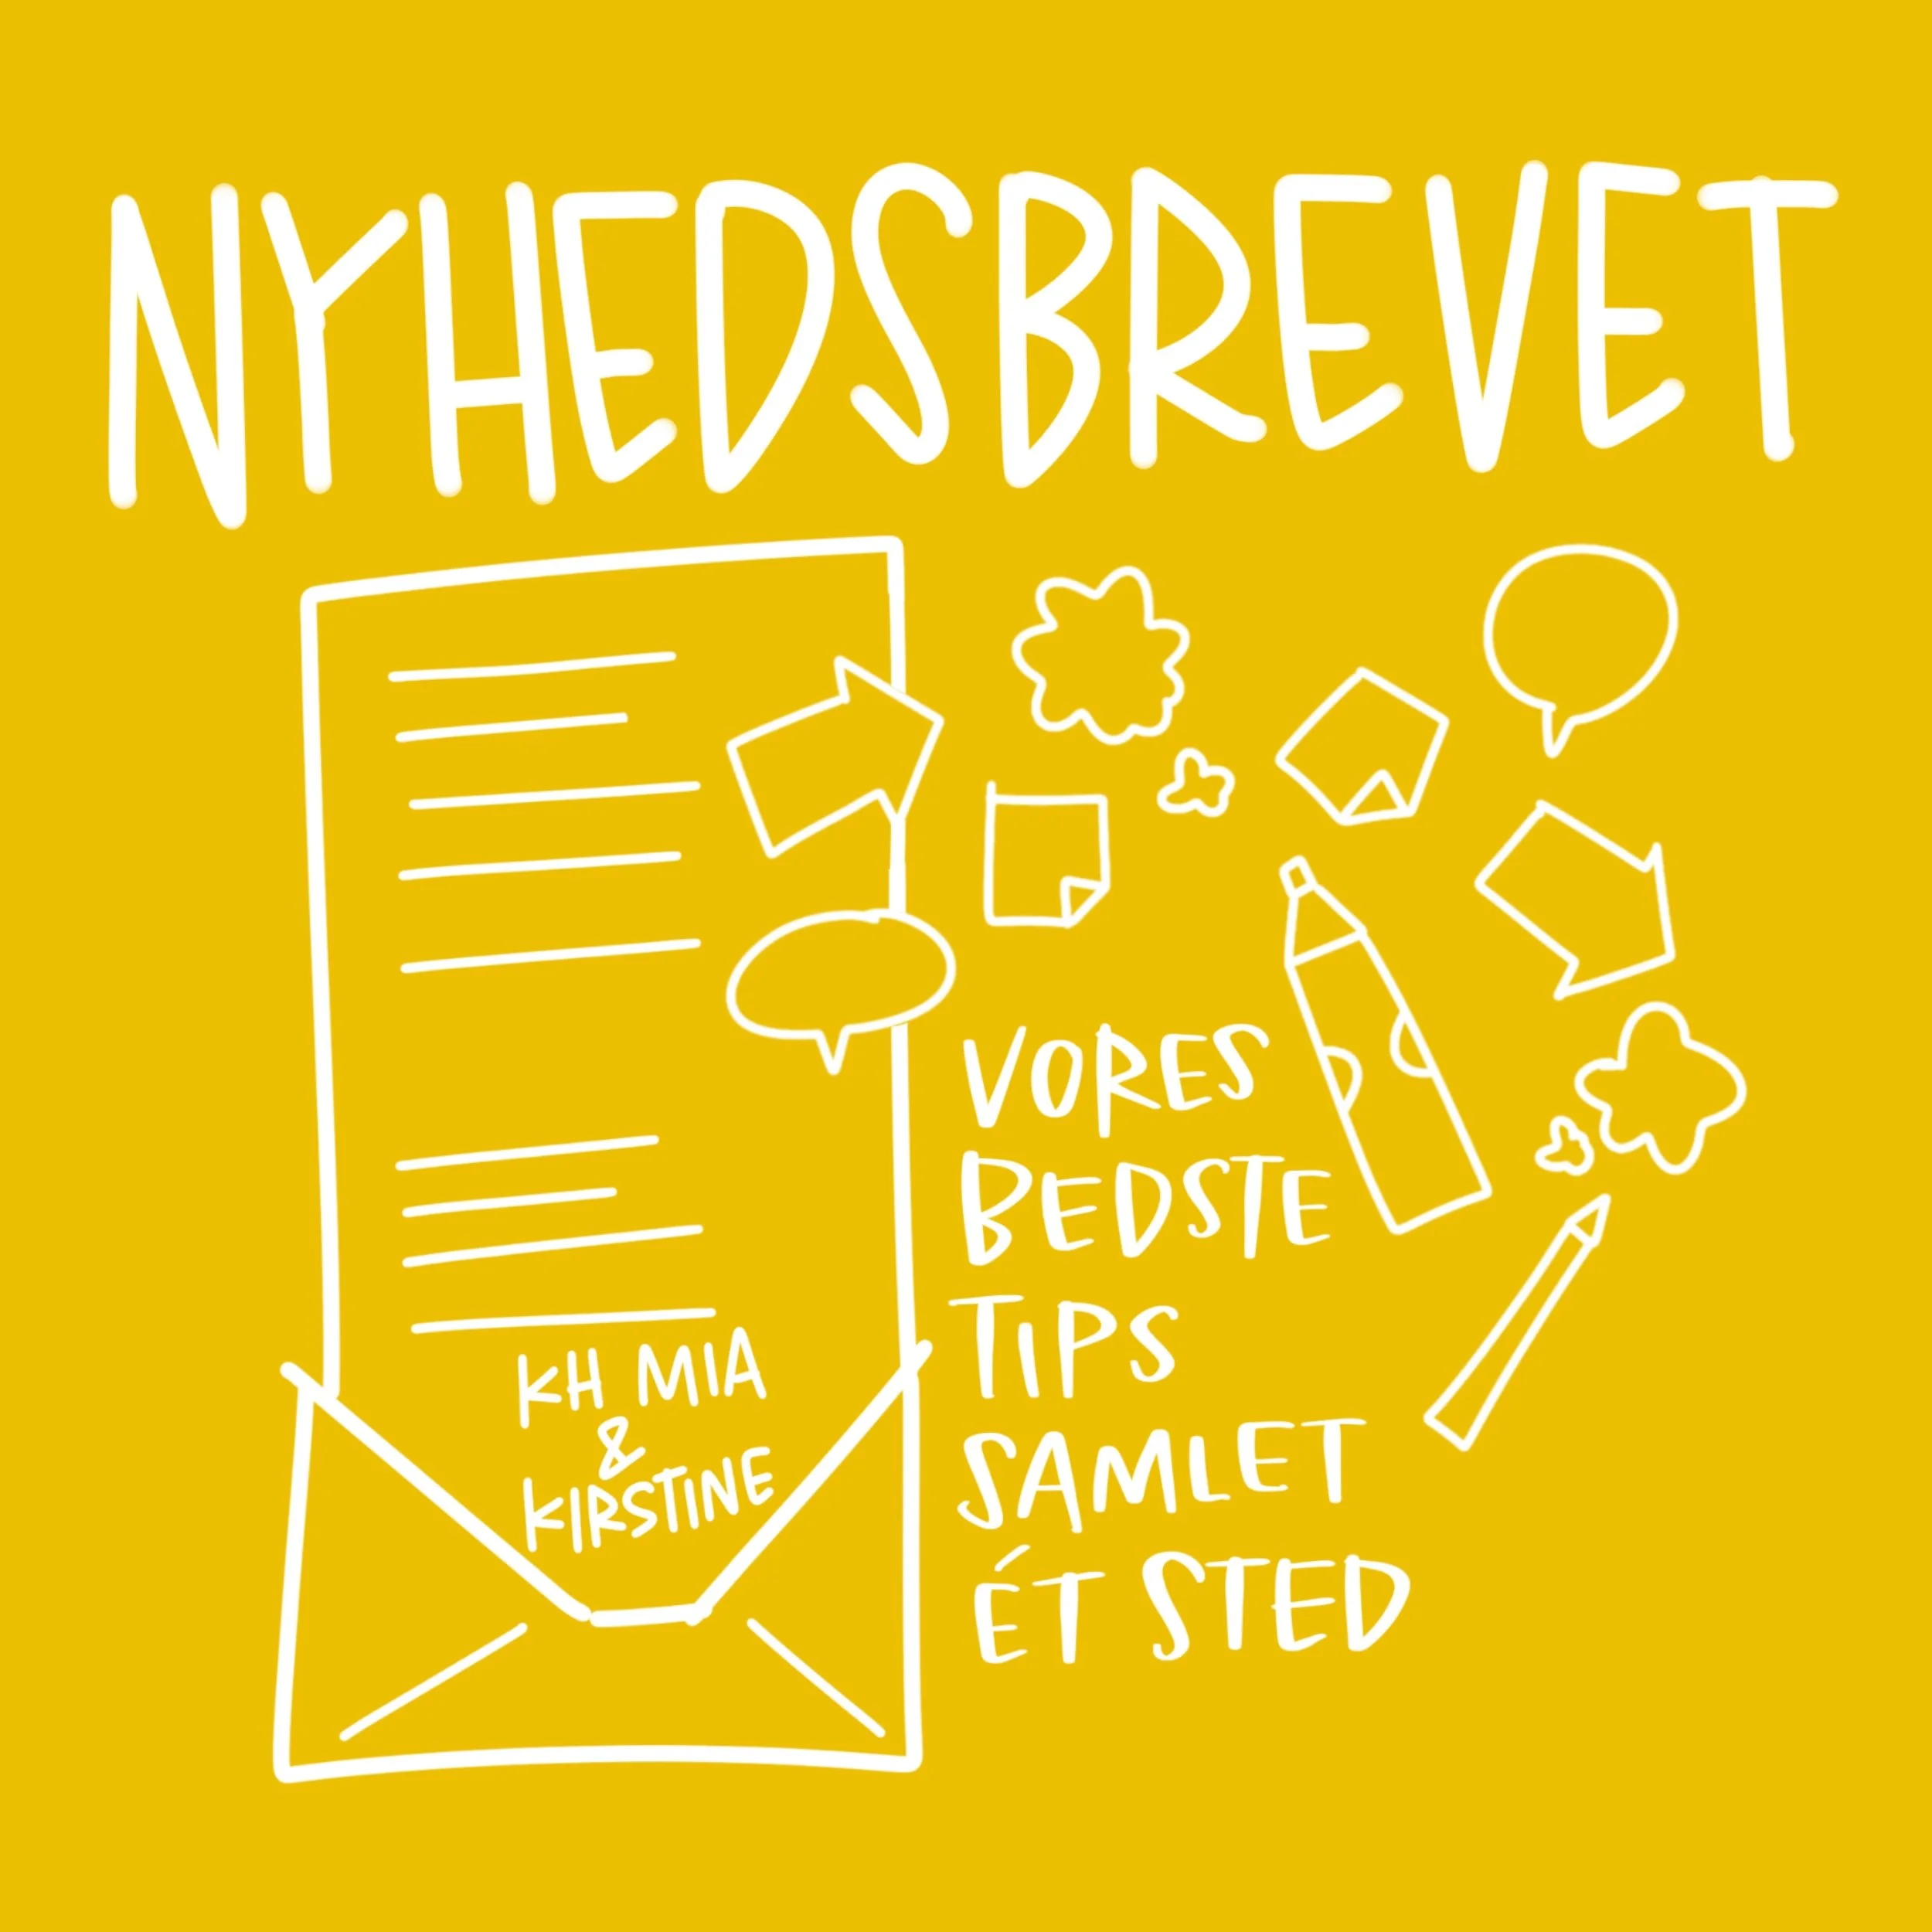 NYHEDSBREVET
KH MIA
&
KIRSTINE
VORES
BEDSTE
TIPS
SAMLET
ÉT STED